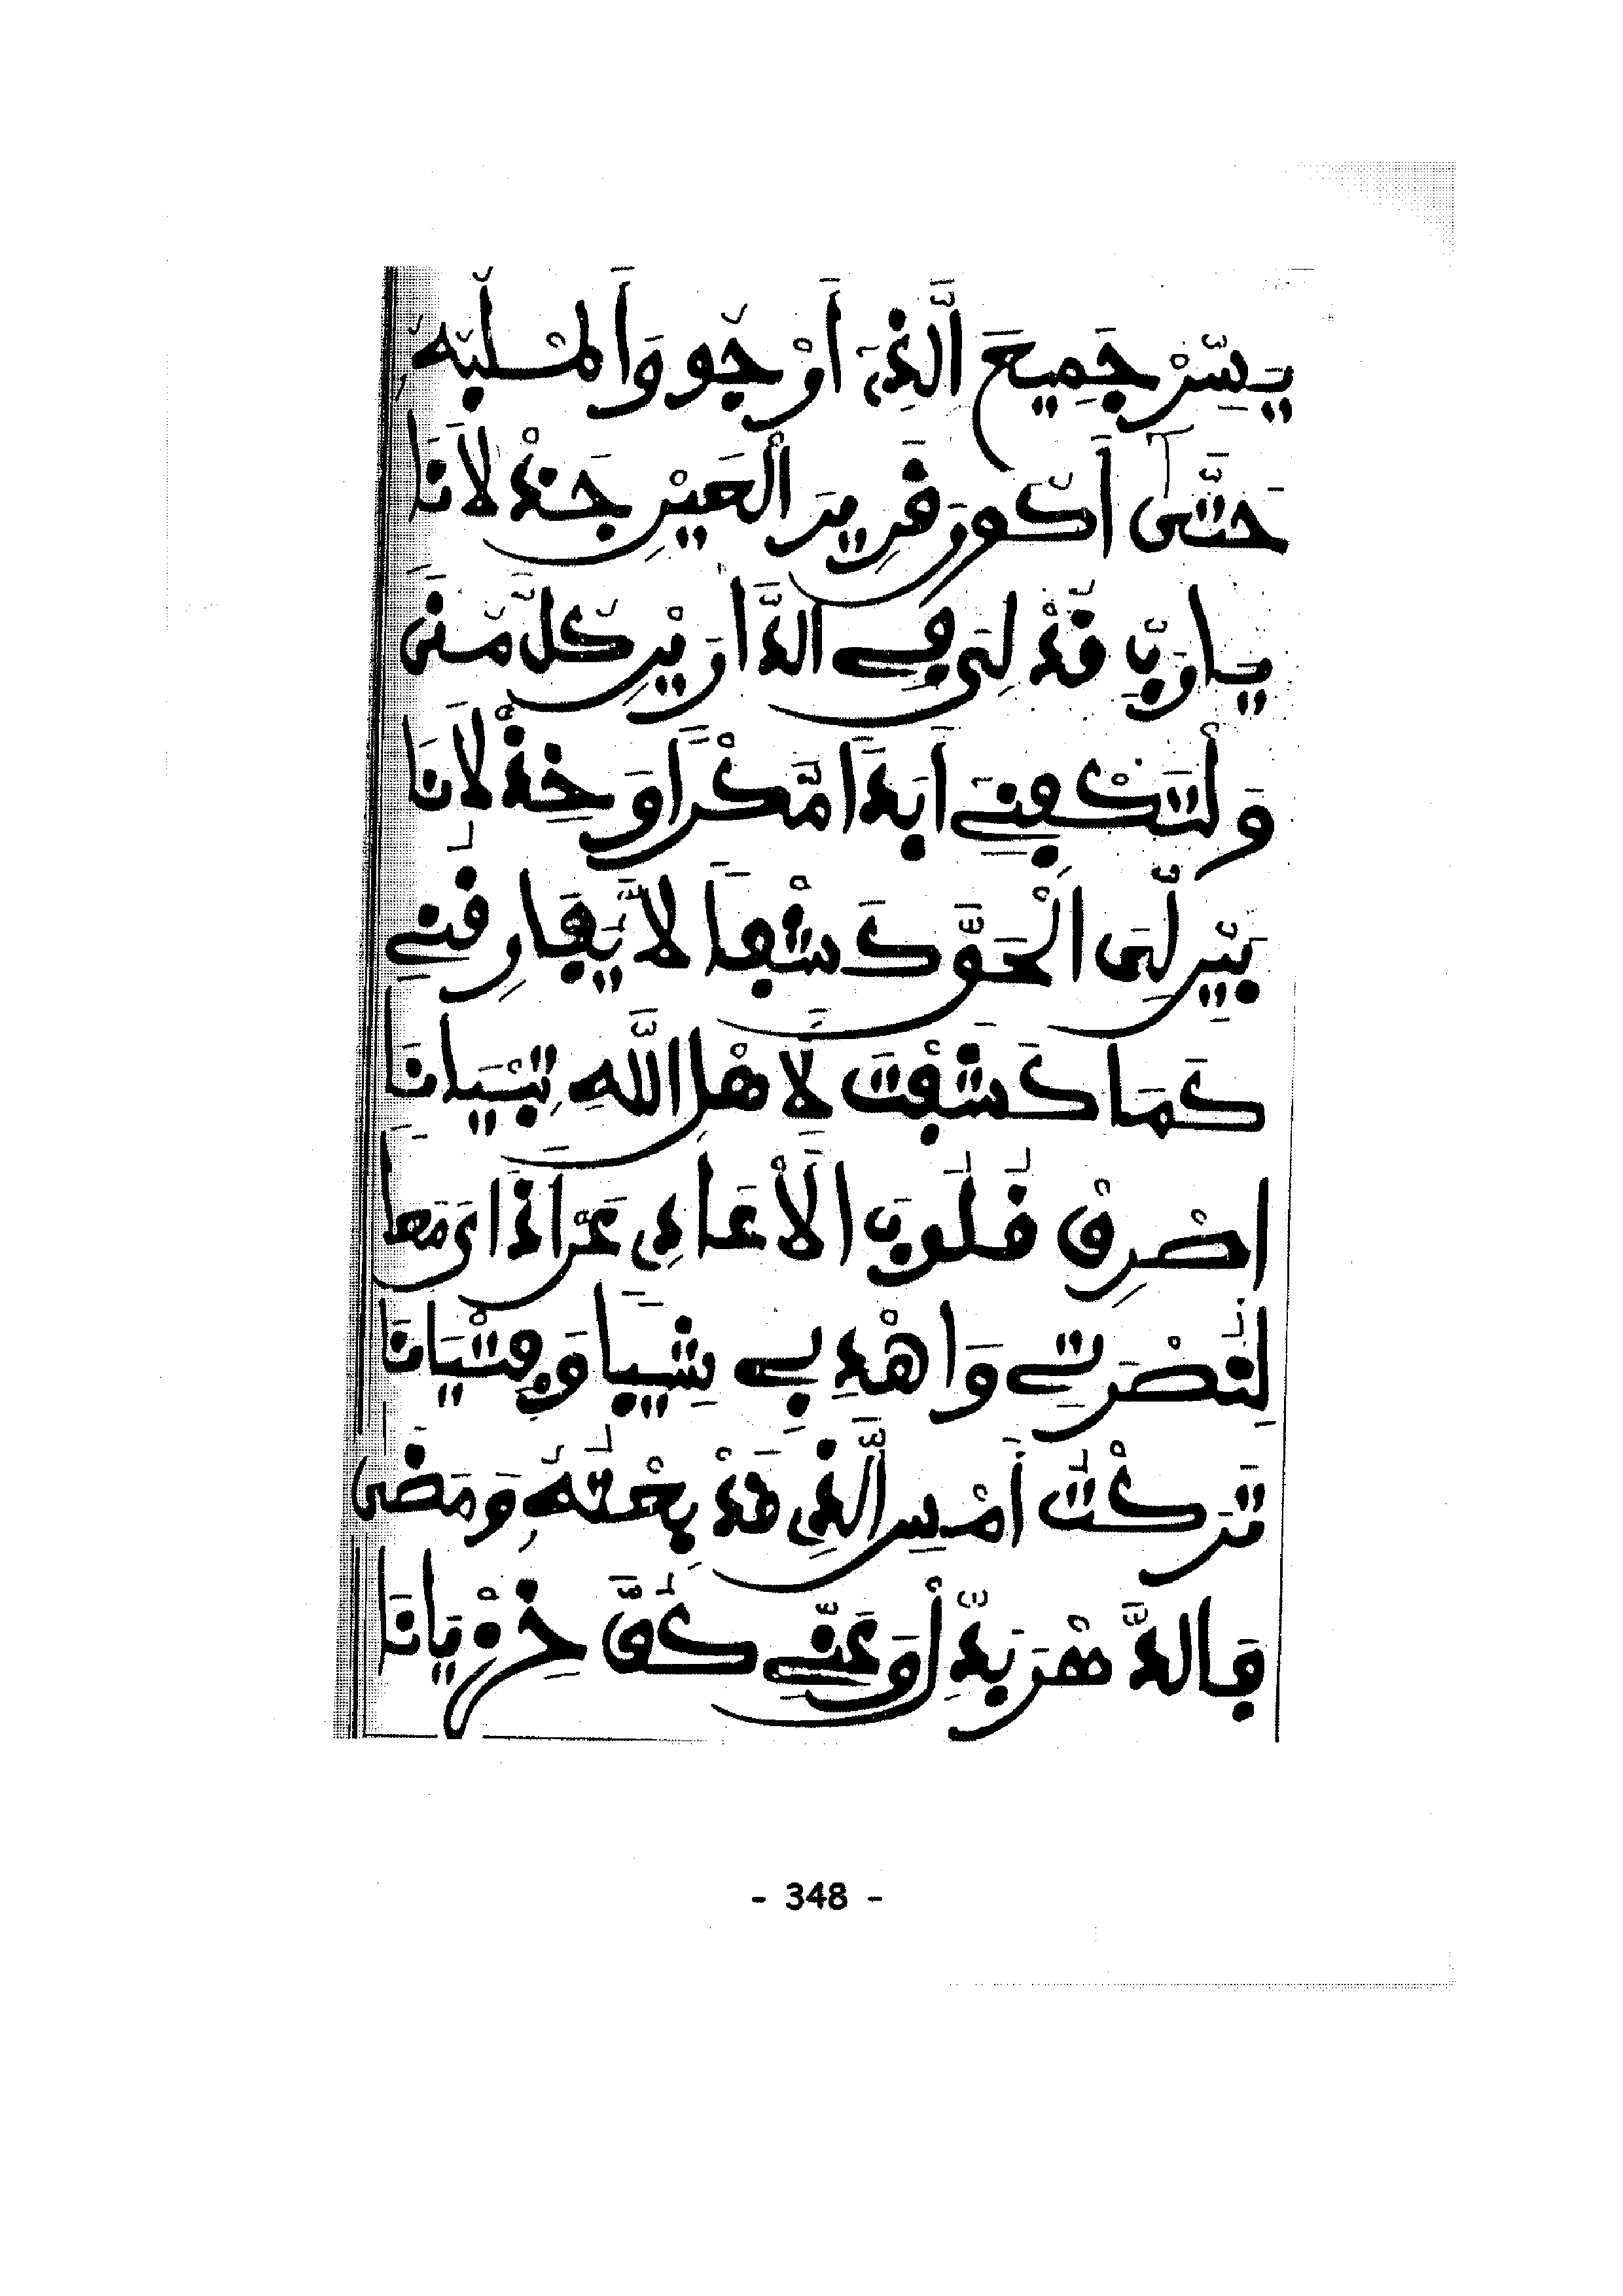 يَسِّرْ جَمِيعَ الَّذِي أَرْجُو وَأَطْلُبُهُ
حَتَّى أَكُونَ قَرِيرَ الْعَيْنِ جَذْلَانَا
يَا رَبِّ قُدْ لِي فِي الدَّارَيْنِ كُلَّ مُنًى
وَلْتَكْفِنِي أَبَدًا مَكْرًا وَخِذْلَانَا
بَيِّنْ لِيَ الْحَقَّ كَشْفًا لَا يُفَارِقُنِي
كَمَا كَشَفْتَ لِأَهْلِ اللَّهِ تِبْيَانَا
اصْرِفْ قُلُوبَ الْأَعَادِي عَنْ أَذَايَ مَعًا
لِنُصْرَتِي وَاهْدِ بِي شِيبًا وَفِتْيَانَا
تَرَكْتُ أَمْسِ الَّذِي قَدْ بِعْتُهُ وَمَضَى
فَالدَّهْرَ بَدِّلْ وَعَنِّي كُفَّ خِزْيَانَا
- 348 -